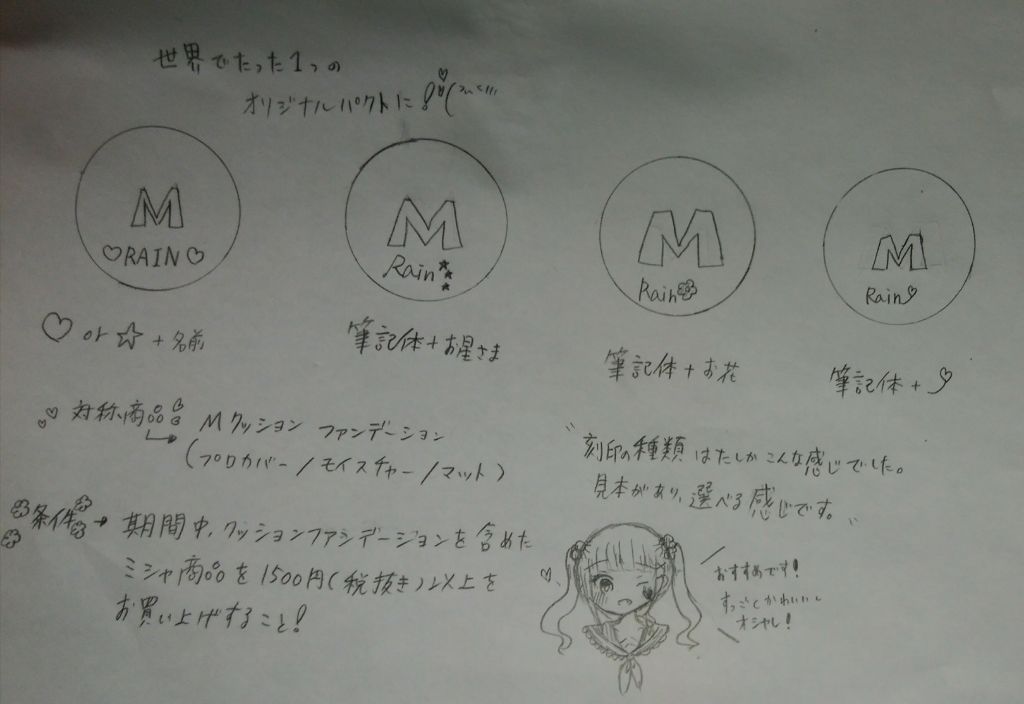 世界でたった1つの
オリジナルパクトに!
M
♡RAIN♡
M
Rain
M
Rain
M
Rain
♡ or ☆ + 名前
筆記体+お星さま
筆記体+お花
筆記体+
対称商品
→ Mクッション ファンデーション
(プロカバー/モイスチャー/マット)
条件→ 期間中、クッションファンデーションを含めた
ミシャ商品を1500円(税抜き)以上を
お買い上げすること!
"刻印の種類はたしかこんな感じでした。
見本があり、選べる感じです。"
おすすめです!
すっごくかわいいし
オシャレ!